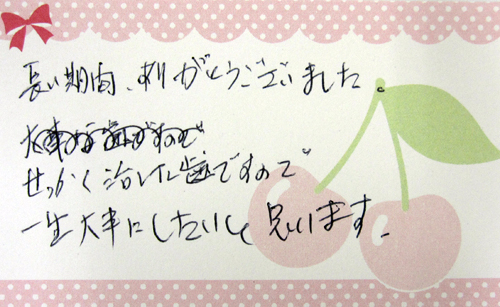 長い期間、ありがとうございました。
せっかく治した歯ですので
一生大事にしたいと思います。